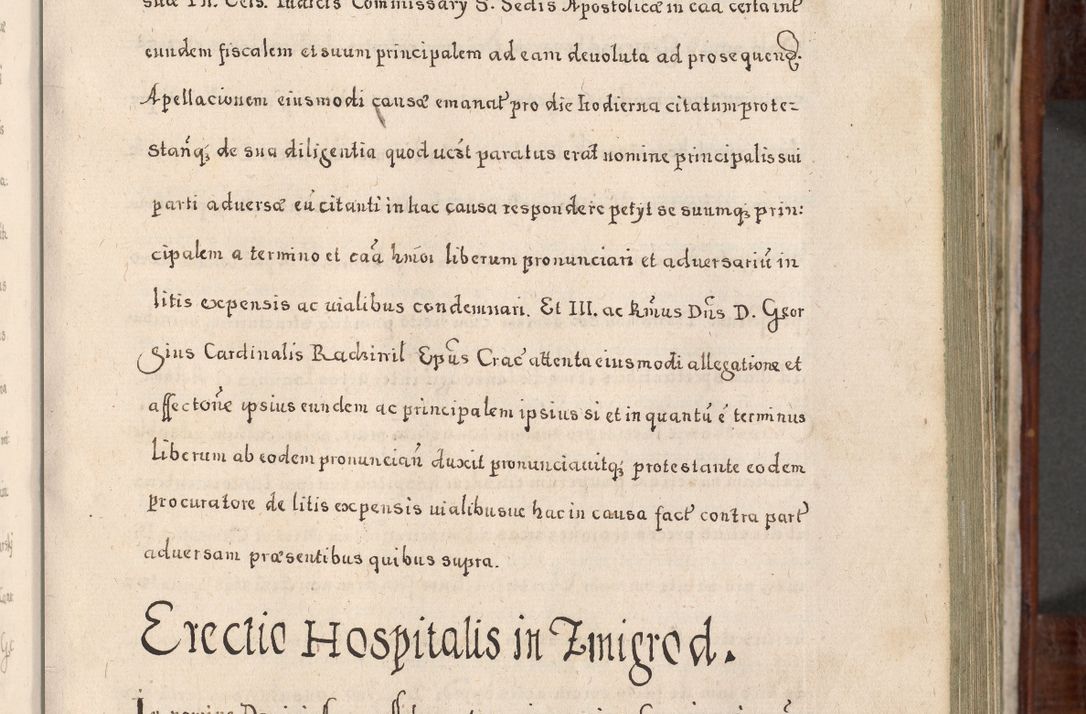 suæ Ill. Cels. Iudicis Commissary S. Sedis Apostolicæ in caã certa int̃
eundem fiscalem et suum principalem ad eam deuoluta ad prosequend.
Apellacionem eiusmodi causæ emanat̃ pro die hodierna citatum prote-
stan̄q; de sua diligentia quod ues̃t paratus erat̃ nomine principalis sui
parti aduersæ eũ citanti in hac causa respondere petyt se suumq; prin:
cipalem a termino et caã hmõi liberum pronunciari et aduersariũ in
litis expensis ac uialibus condemnari. Et Ill. ac Rm̃us Dñs D. Geor
gius Cardinalis Radziuil Ep̃us Crac̃ attenta eiusmodi allegatione et
affectõne ipsius eundem ac principalem ipsius si et in quantũ ẽ terminus
liberum ab eodem pronuncian̄ duxit pronunciauitq; protestante eodem
procuratore de litis expensis uialibusue hac in causa fact̃ contra part̃
aduersam præsentibus quibus supra.
Erectio Hospitalis in Zmigrod.
In nomine Domini